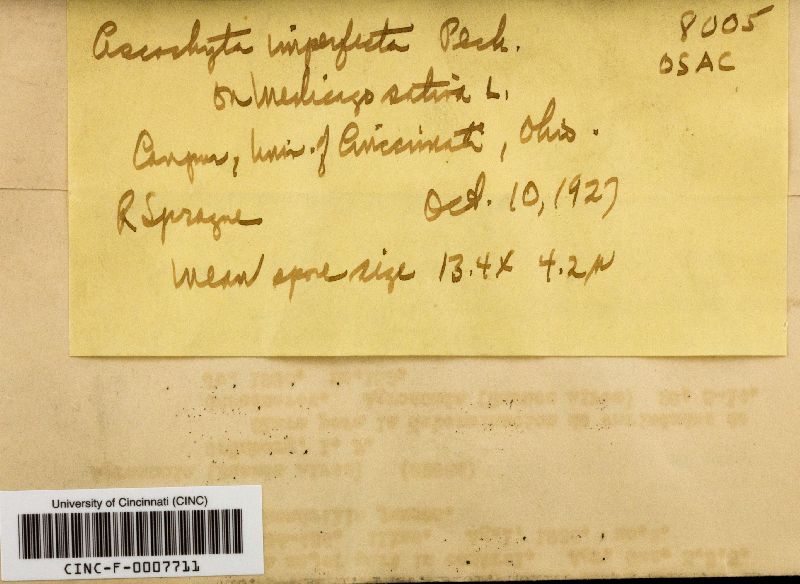 Ascochyta imperfecta Peck.
8005
OSAC
On Medicago sativa L.
Campus, Univ. of Cincinnati, Ohio.
R Sprague Oct. 10, 1927
Mean spore size 13.4 x 4.2 µ
University of Cincinnati (CINC)
CINC-F-0007711